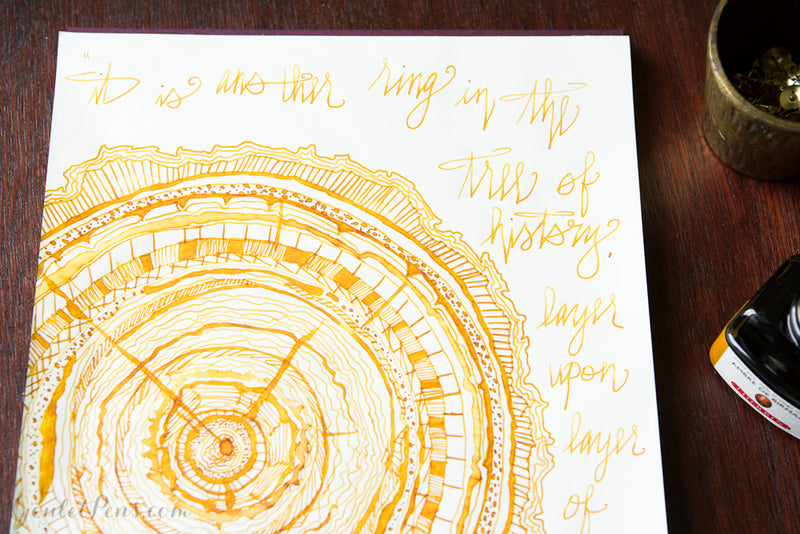 "it is another ring in the
tree of
history.
layer
upon
layer
of
AMBRE DE BIRMA
GouletPens.com